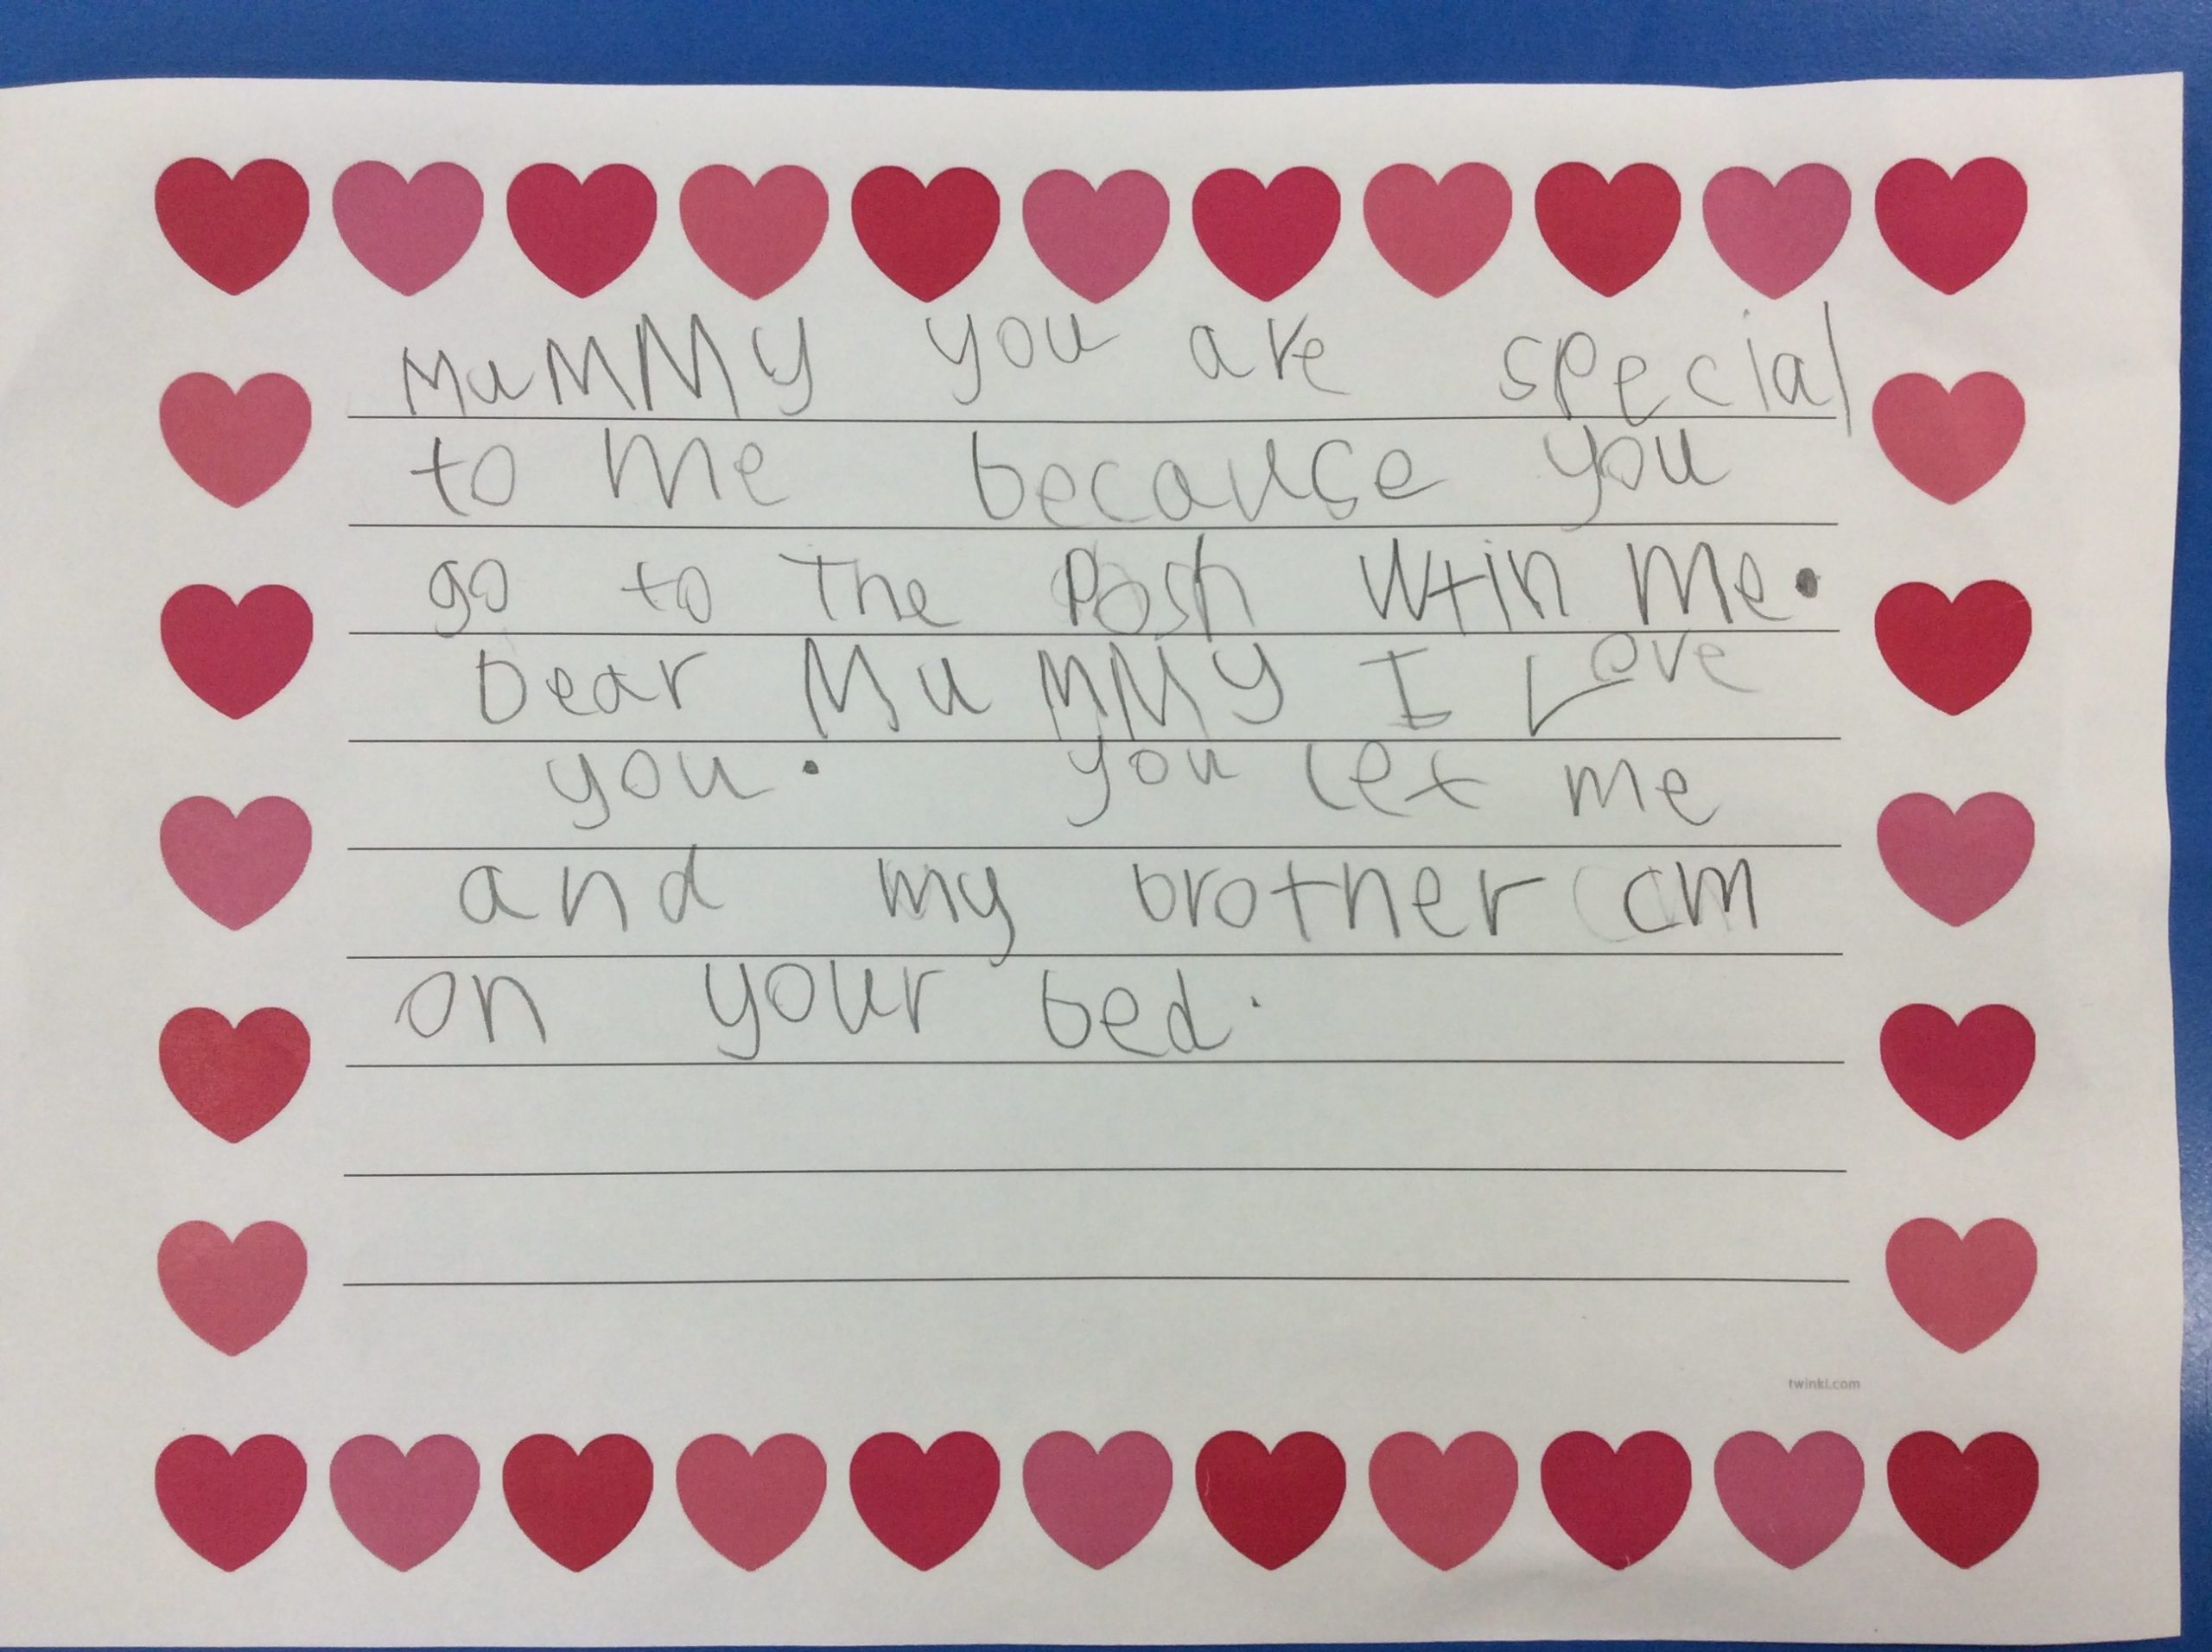 MuMMy you are special
to me because you
go to The Posh Wtin Me.
Dear MuMMy I Love
you. you let me
and my brother cm
on your bed.
twinkl.com